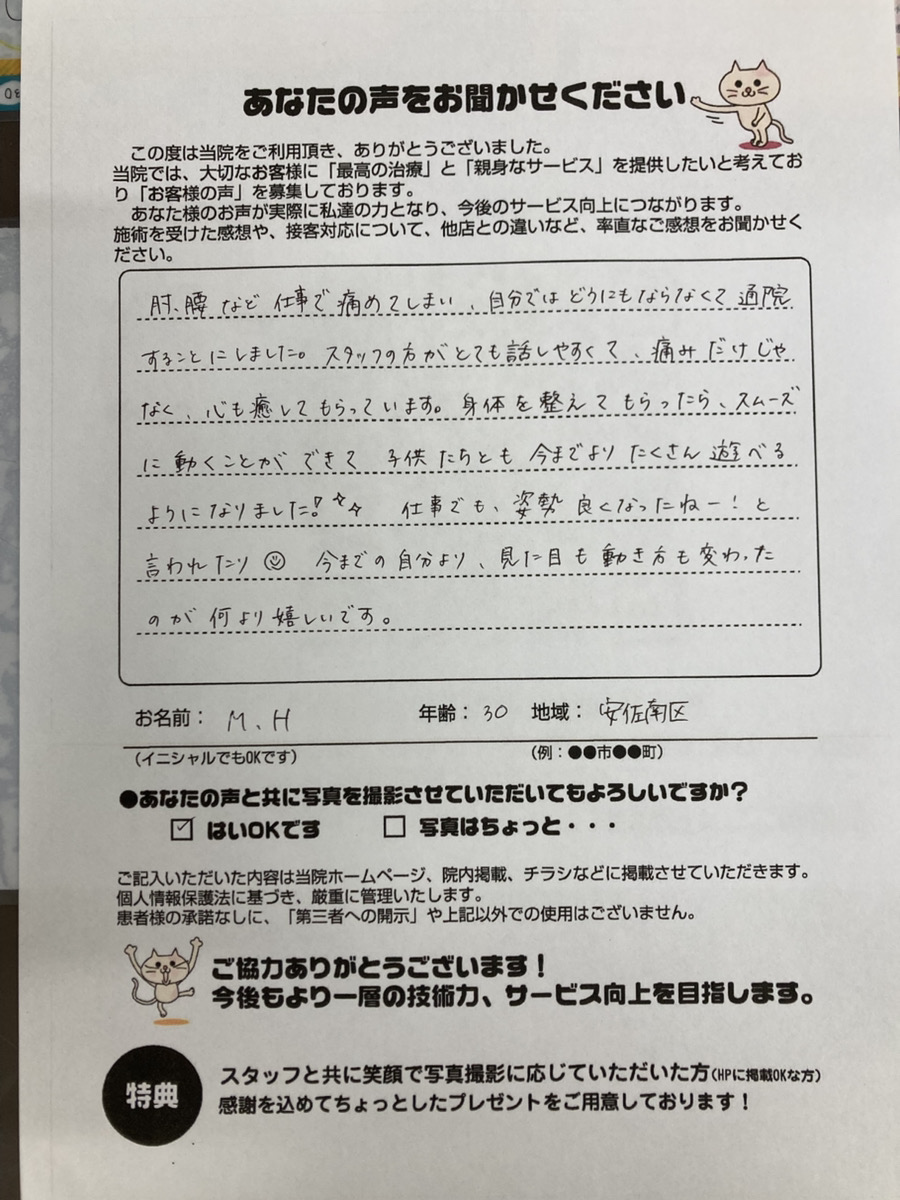 あなたの声をお聞かせください
この度は当院をご利用頂き、ありがとうございました。
当院では、大切なお客様に「最高の治療」と「親身なサービス」を提供したいと考えてお
り「お客様の声」を募集しております。
あなた様のお声が実際に私達の力となり、今後のサービス向上につながります。
施術を受けた感想や、接客対応について、他店との違いなど、率直なご感想をお聞かせく
ださい。
肘、腰など仕事で痛めてしまい、自分ではどうにもならなくて通院
することにしました。スタッフの方がとても話しやすくて、痛みだけじゃ
なく、心も癒してもらっています。身体を整えてもらったら、スムーズ
に動くことができて 子供たちとも今までよりたくさん遊べる
ようになりました! 仕事でも、姿勢良くなったねー!と
言われたり☺ 今までの自分より、見た目も動き方も変わった
のが何より嬉しいです。
お名前: M、H 年齢: 30 地域: 安佐南区
(イニシャルでもOKです) (例:●●市●●町)
●あなたの声と共に写真を撮影させていただいてもよろしいですか?
☑ はいOKです □ 写真はちょっと・・・
ご記入いただいた内容は当院ホームページ、院内掲載、チラシなどに掲載させていただきます。
個人情報保護法に基づき、厳重に管理いたします。
患者様の承諾なしに、「第三者への開示」や上記以外での使用はございません。
ご協力ありがとうございます!
今後もより一層の技術力、サービス向上を目指します。
特典
スタッフと共に笑顔で写真撮影に応じていただいた方(HPに掲載OKな方)
感謝を込めてちょっとしたプレゼントをご用意しております!